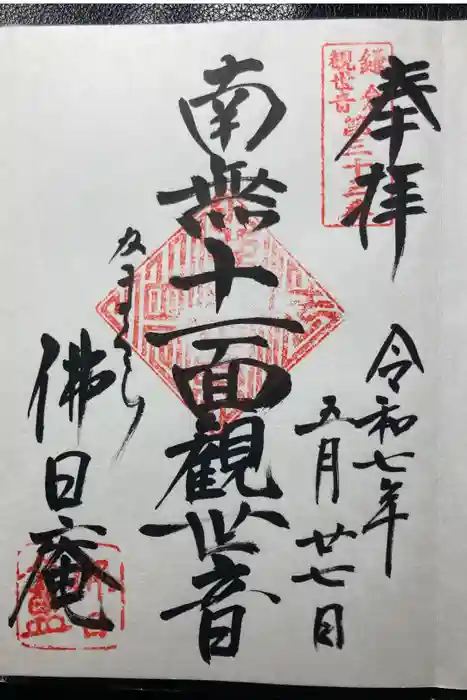 奉拝
鎌倉第三十三
観世音
令和七年
五月廿七日
南無十一面観世音
かまくら
佛日庵